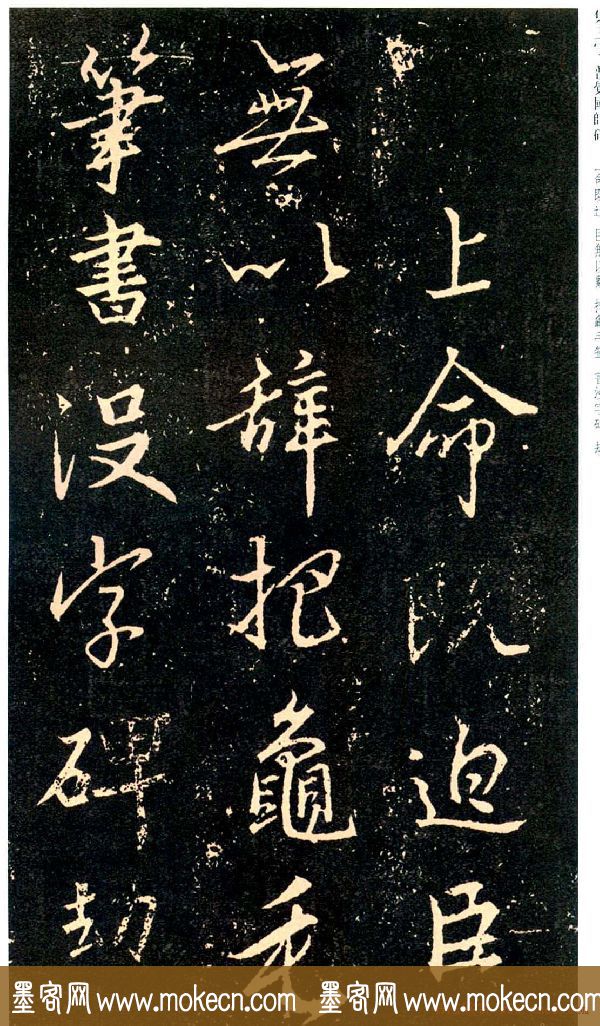 上命既迫臣
無以辭把龜毛
筆書没字碑劫
墨客网 www.mokecn.com 墨客网 www.mokecn.com